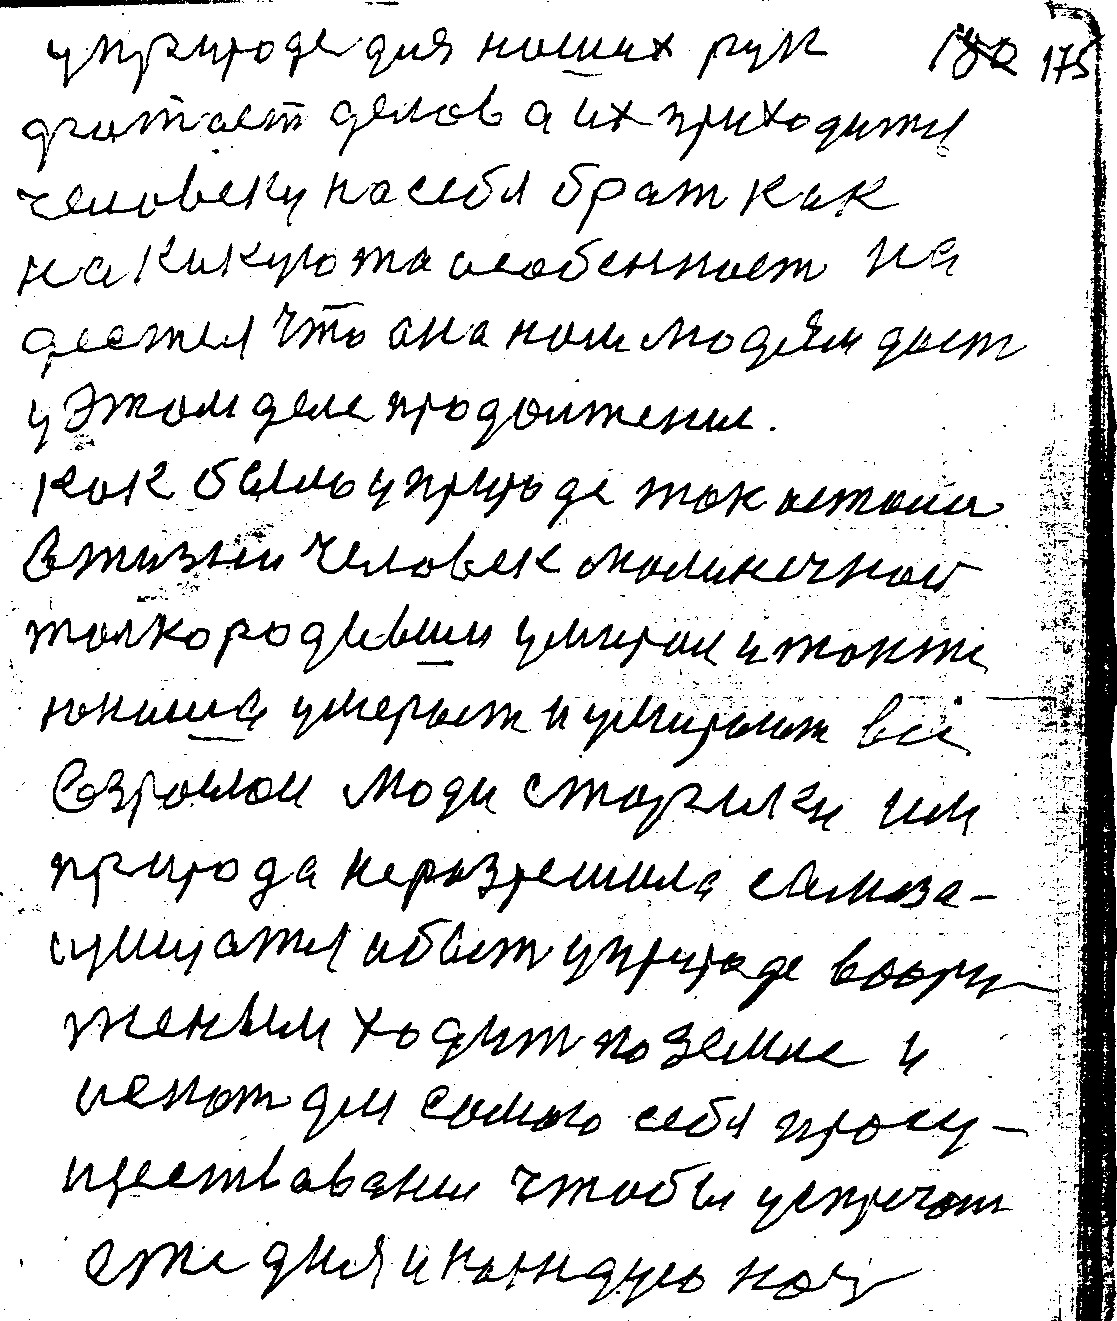 у природе для наших рук 175
хватает делов а их приходится
человеку на себя брат как
на какуюто особенност на
деется что она нам людям даст
у этом деле продолжения.
как было у природе так и стали
в жизни человек малинечкой
толкородившия умирал и также
юниша умерает и умирают всі
возрослои люди старики им
природа неразрешила самоза-
щищатся а бвет у природе воори
женым ходит по земле и
искат для самого себя просу-
ществавания чтобы устречат
еже дня и каждую ноч